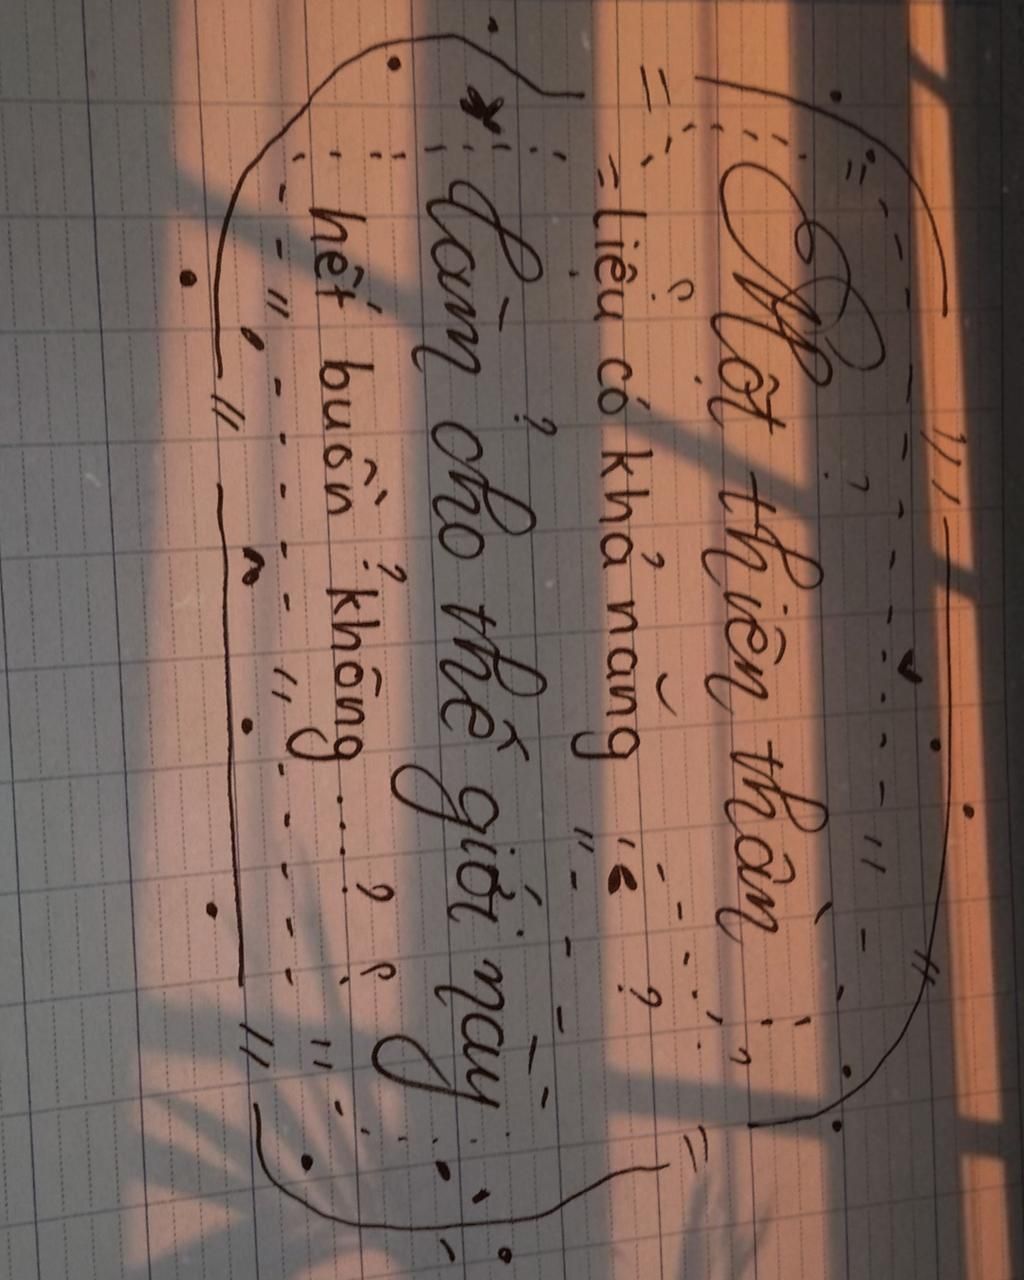 Một thiên thần
- liệu có khả năng
làm cho thế giới này
hết buồn không.....?